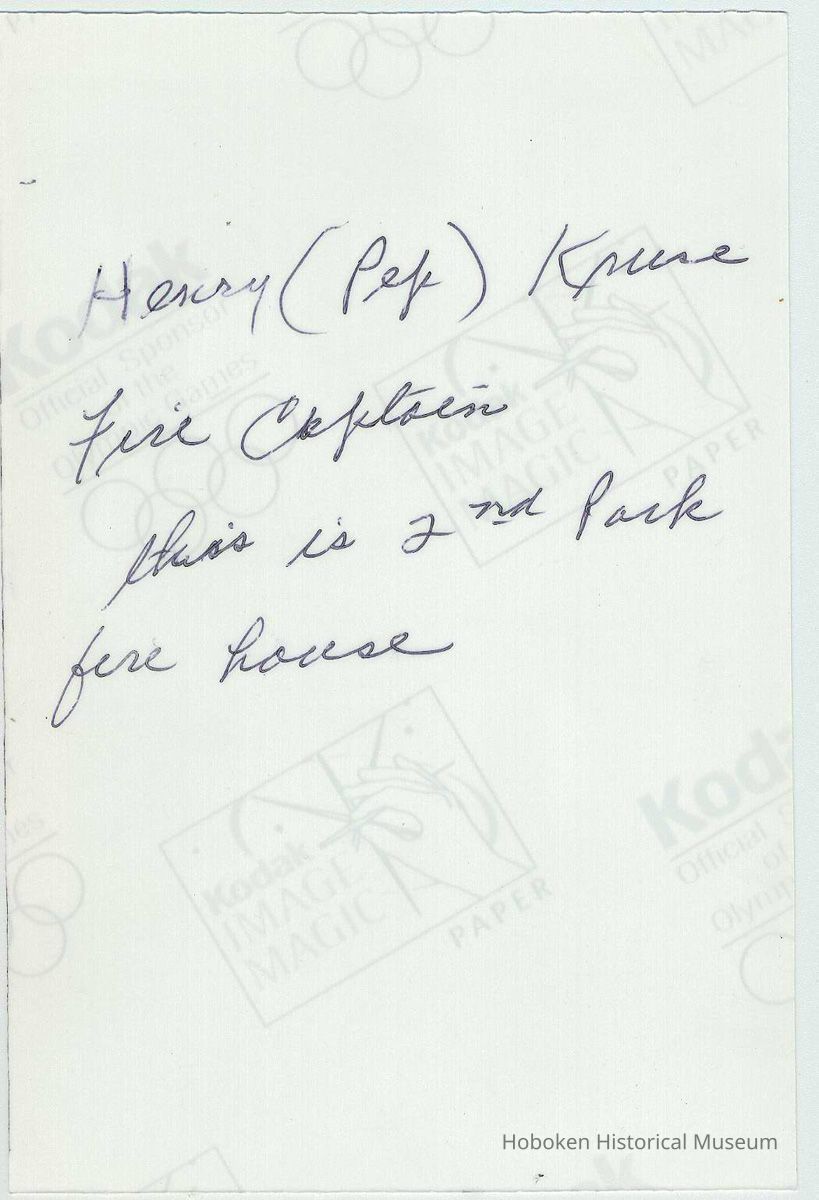 Henry (Pep) Kruse
Fire Captain
this is 2nd Park
fire house
Kodak
Official Sponsor
of the
Olympic Games
Kodak
IMAGE
MAGIC
PAPER
Kodak
IMAGE
MAGIC
PAPER
Kodak
Official
of
Olymp
Hoboken Historical Museum